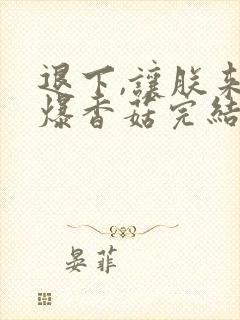 退下,讓朕來
爆香菇完結
晏菲